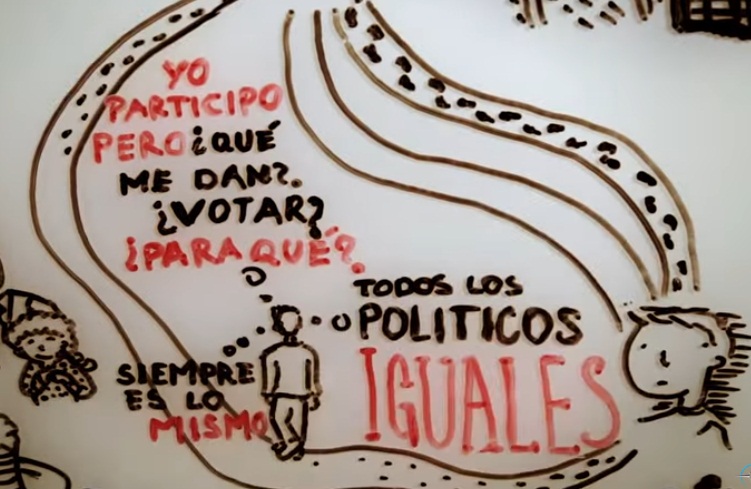 YO
PARTICIPO
PERO ¿QUÉ
ME DAN?.
¿VOTAR?
¿PARA QUÉ?.
TODOS LOS
POLITICOS
IGUALES
SIEMPRE
ES LO
MISMO